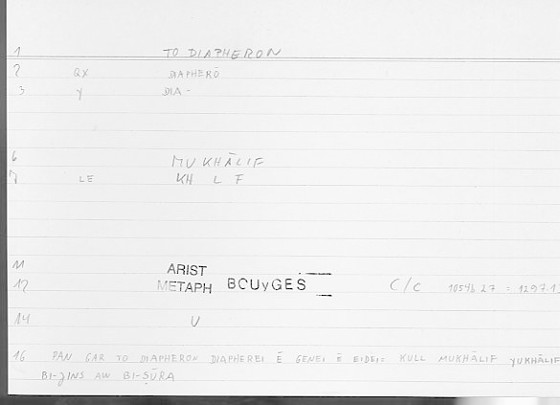 1 TO DIAPHERON
2 QX DIAPHERŌ
3 Y DIA-
6 MUKHĀLIF
7 LE KH L F
M
ARIST
12 METAPH BOUyGES C/C 1054b 27 = 1297.1
14 V
16 PAN GAR TO DIAPHERON DIAPHEREI Ē GENEI Ē EIDEI: KULL MUKHĀLIF YUKHĀLIF
BI-JINS AW BI-ṢŪRA